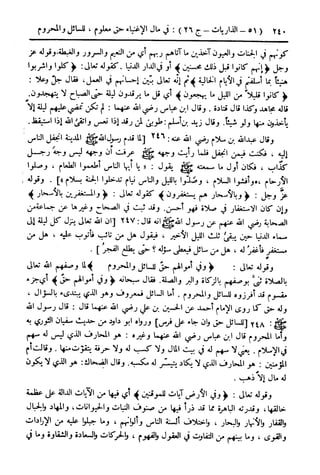 ٢٤٠ (٥١ - الذاريات - ج٢٦) : في مال الأغنياء حق معلوم ، للسائل والمحروم
كونهم في الجنات والعيون آخذين ما آتاهم ربهم أي من النعيم والسرور والغبطة، وقوله عز
وجل ﴿ إنهم كانوا قبل ذلك محسنين ﴾ أي في الدار الدنيا . كقوله تعالى: ﴿ كلوا واشربوا
هنيئاً بما أسلفتم في الأيام الخالية ﴾ ثم إنه تعالى بيّن إحسانهم في العمل، فقال جل وعلا :
﴿ كانوا قليلاً من الليل ما يهجعون ﴾ أي قل ما يرقدون ليلة حتى الصباح لا يتهجدون .
قاله مجاهد وكذا قال قتادة . وقال ابن عباس رضي الله عنهما : لم تكن تمضي عليهم ليلة إلا
يأخذون منها ولو شيئاً . وقال زيد بن أسلم : طوبى لمن رقد إذا نعس واتقى الله إذا استيقظ .
وقال عبدالله بن سلام رضي الله عنه : ٢٤٦ [لما قدم رسول الله ﷺ المدينة انجفل الناس
إليه ، فكنت فيمن انجفل فلما رأيت وجهه ﷺ عرفت أن وجهه ليس وجه رجل
كذاب ، فكان أول ما سمعته ﷺ يقول : يا أيها الناس أطعموا الطعام ، وصلوا
الأرحام ، وأفشوا السلام ، وصلوا بالليل والناس نيام تدخلوا الجنة بسلام ] . وقوله
عز وجل : ﴿ وبالأسحار هم يستغفرون ﴾ كقوله تعالى : ﴿ والمستغفرين بالأسحار ﴾
وإن كان الاستغفار في صلاة فهو أحسن. وقد ثبت في الصحاح وغيرها عن جماعة من
الصحابة رضي الله عنهم عن رسول الله ﷺ أنه قال : ٢٤٧ [إن الله تعالى ينزل كل ليلة إلى
سماء الدنيا حين يبقى ثلث الليل الأخير ، فيقول هل من تائب فأتوب عليه ، هل من
مستغفر فأغفر له ، هل من سائل فيعطى سؤله ؟ حتى يطلع الفجر ] .
وقوله تعالى : ﴿ وفي أموالهم حق للسائل والمحروم ﴾ لما وصفهم الله تعالى
بالصلاة ثنى بوصفهم بالزكاة والبر والصلة. فقال سبحانه ﴿ وفي أموالهم حق ﴾ أي جزء
مقسوم قد أفرزوه للسائل والمحروم . أما السائل فمعروف وهو الذي يبتدىء بالسؤال ،
وله حق كما روى الإمام أحمد عن الحسين بن علي رضي الله عنهما قال : قال رسول الله
ﷺ : ٢٤٨ [للسائل حق وإن جاء على فرس] ورواه ابو داود من حديث سفيان الثوري به
وأما المحروم قال ابن عباس رضي الله عنهما وغيره : هو المحارف الذي ليس له سهم
في الإسلام . يعني لا سهم له في بيت المال ولا كسب له ولا حرفة يتقوت منها . وقالت أم
المؤمنين : هو المحارف الذي لا يكاد يتيسر له مكسبه . وقال الضحاك : هو الذي لا يكون
له مال إلا ذهب .
وقوله تعالى : ﴿ وفي الأرض آيات للموقنين ﴾ أي فيها من الآيات الدالة على عظمة
خالقها ، وقدرته الباهرة مما قد ذرأ فيها من صنوف النبات والحيوانات ، والمهاد والجبال
والقفار والأنهار والبحار ، واختلاف ألسنة الناس وألوانهم ، وما جبلوا عليه من الإرادات
والقوى ، وما بينهم من التفاوت في العقول والفهوم ، والحركات والسعادة والشقاوة وما في